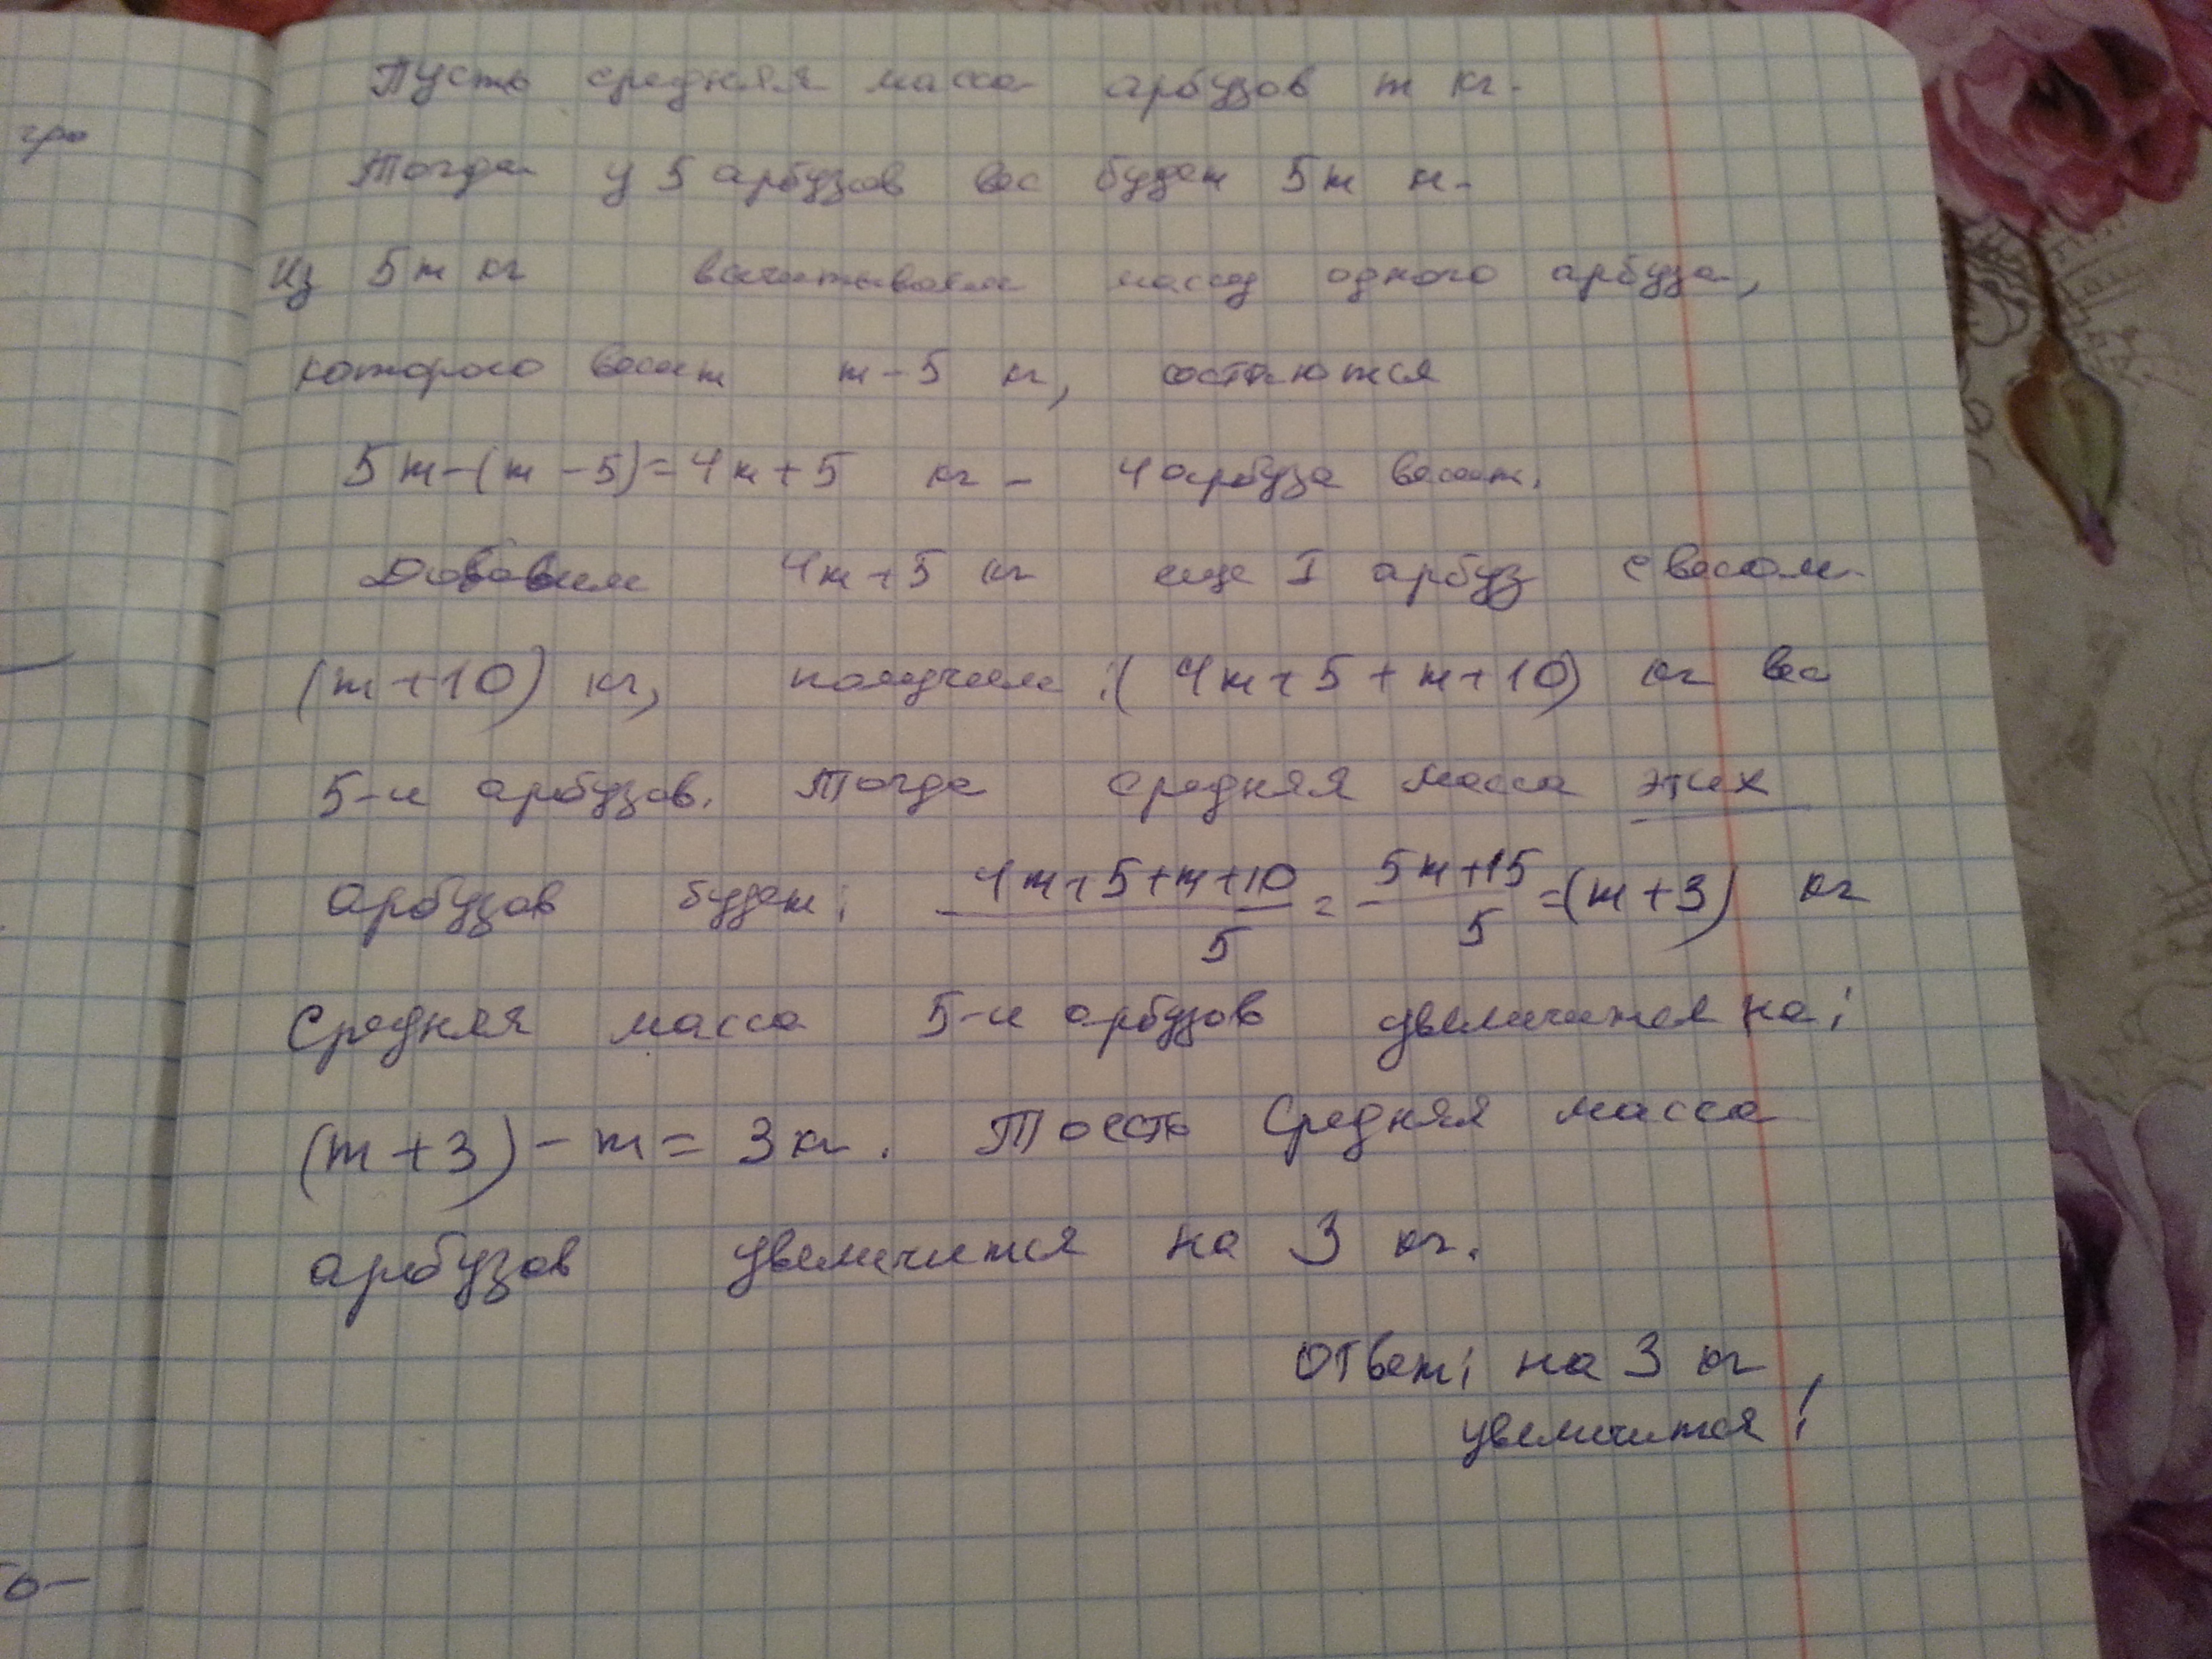 Пусть средняя масса арбузов m кг.
Тогда у 5 арбузов вес будет 5m кг.
Из 5m кг вычитываем массу одного арбуза,
которого весит m-5 кг, остаются
5m-(m-5)=4m+5 кг - 4 арбуза весят.
Добавим 4m+5 кг еще 1 арбуз с весом
(m+10) кг, получим: (4m+5+m+10) кг вес
5-и арбузов. Тогда средняя масса этих
арбузов будет: (4m+5+m+10)/5 = (5m+15)/5 = (m+3) кг
Средняя масса 5-и арбузов увеличится на:
(m+3)-m= 3 кг. То есть Средняя масса
арбузов увеличится на 3 кг.
Ответ: на 3 кг
увеличится!